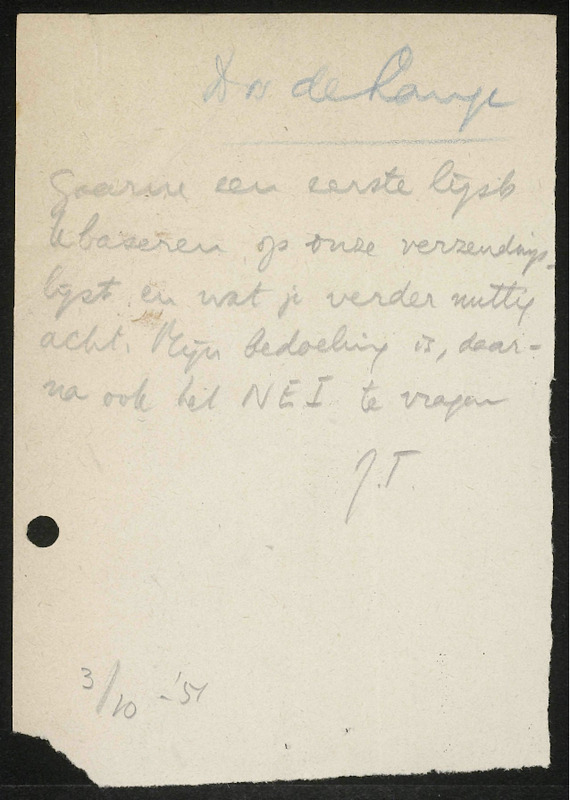 Drs de Lange
Gaarne een eerste lijst
te baseren op onze verzendings-
lijst en wat je verder nuttig
acht. Mijn bedoeling is, daar-
na ook het NEI te vragen
J.T.
3/10 -'51